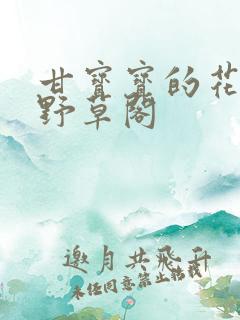 甘寶寶的花
野草閣
邀月共飛升
未經同意禁止轉載